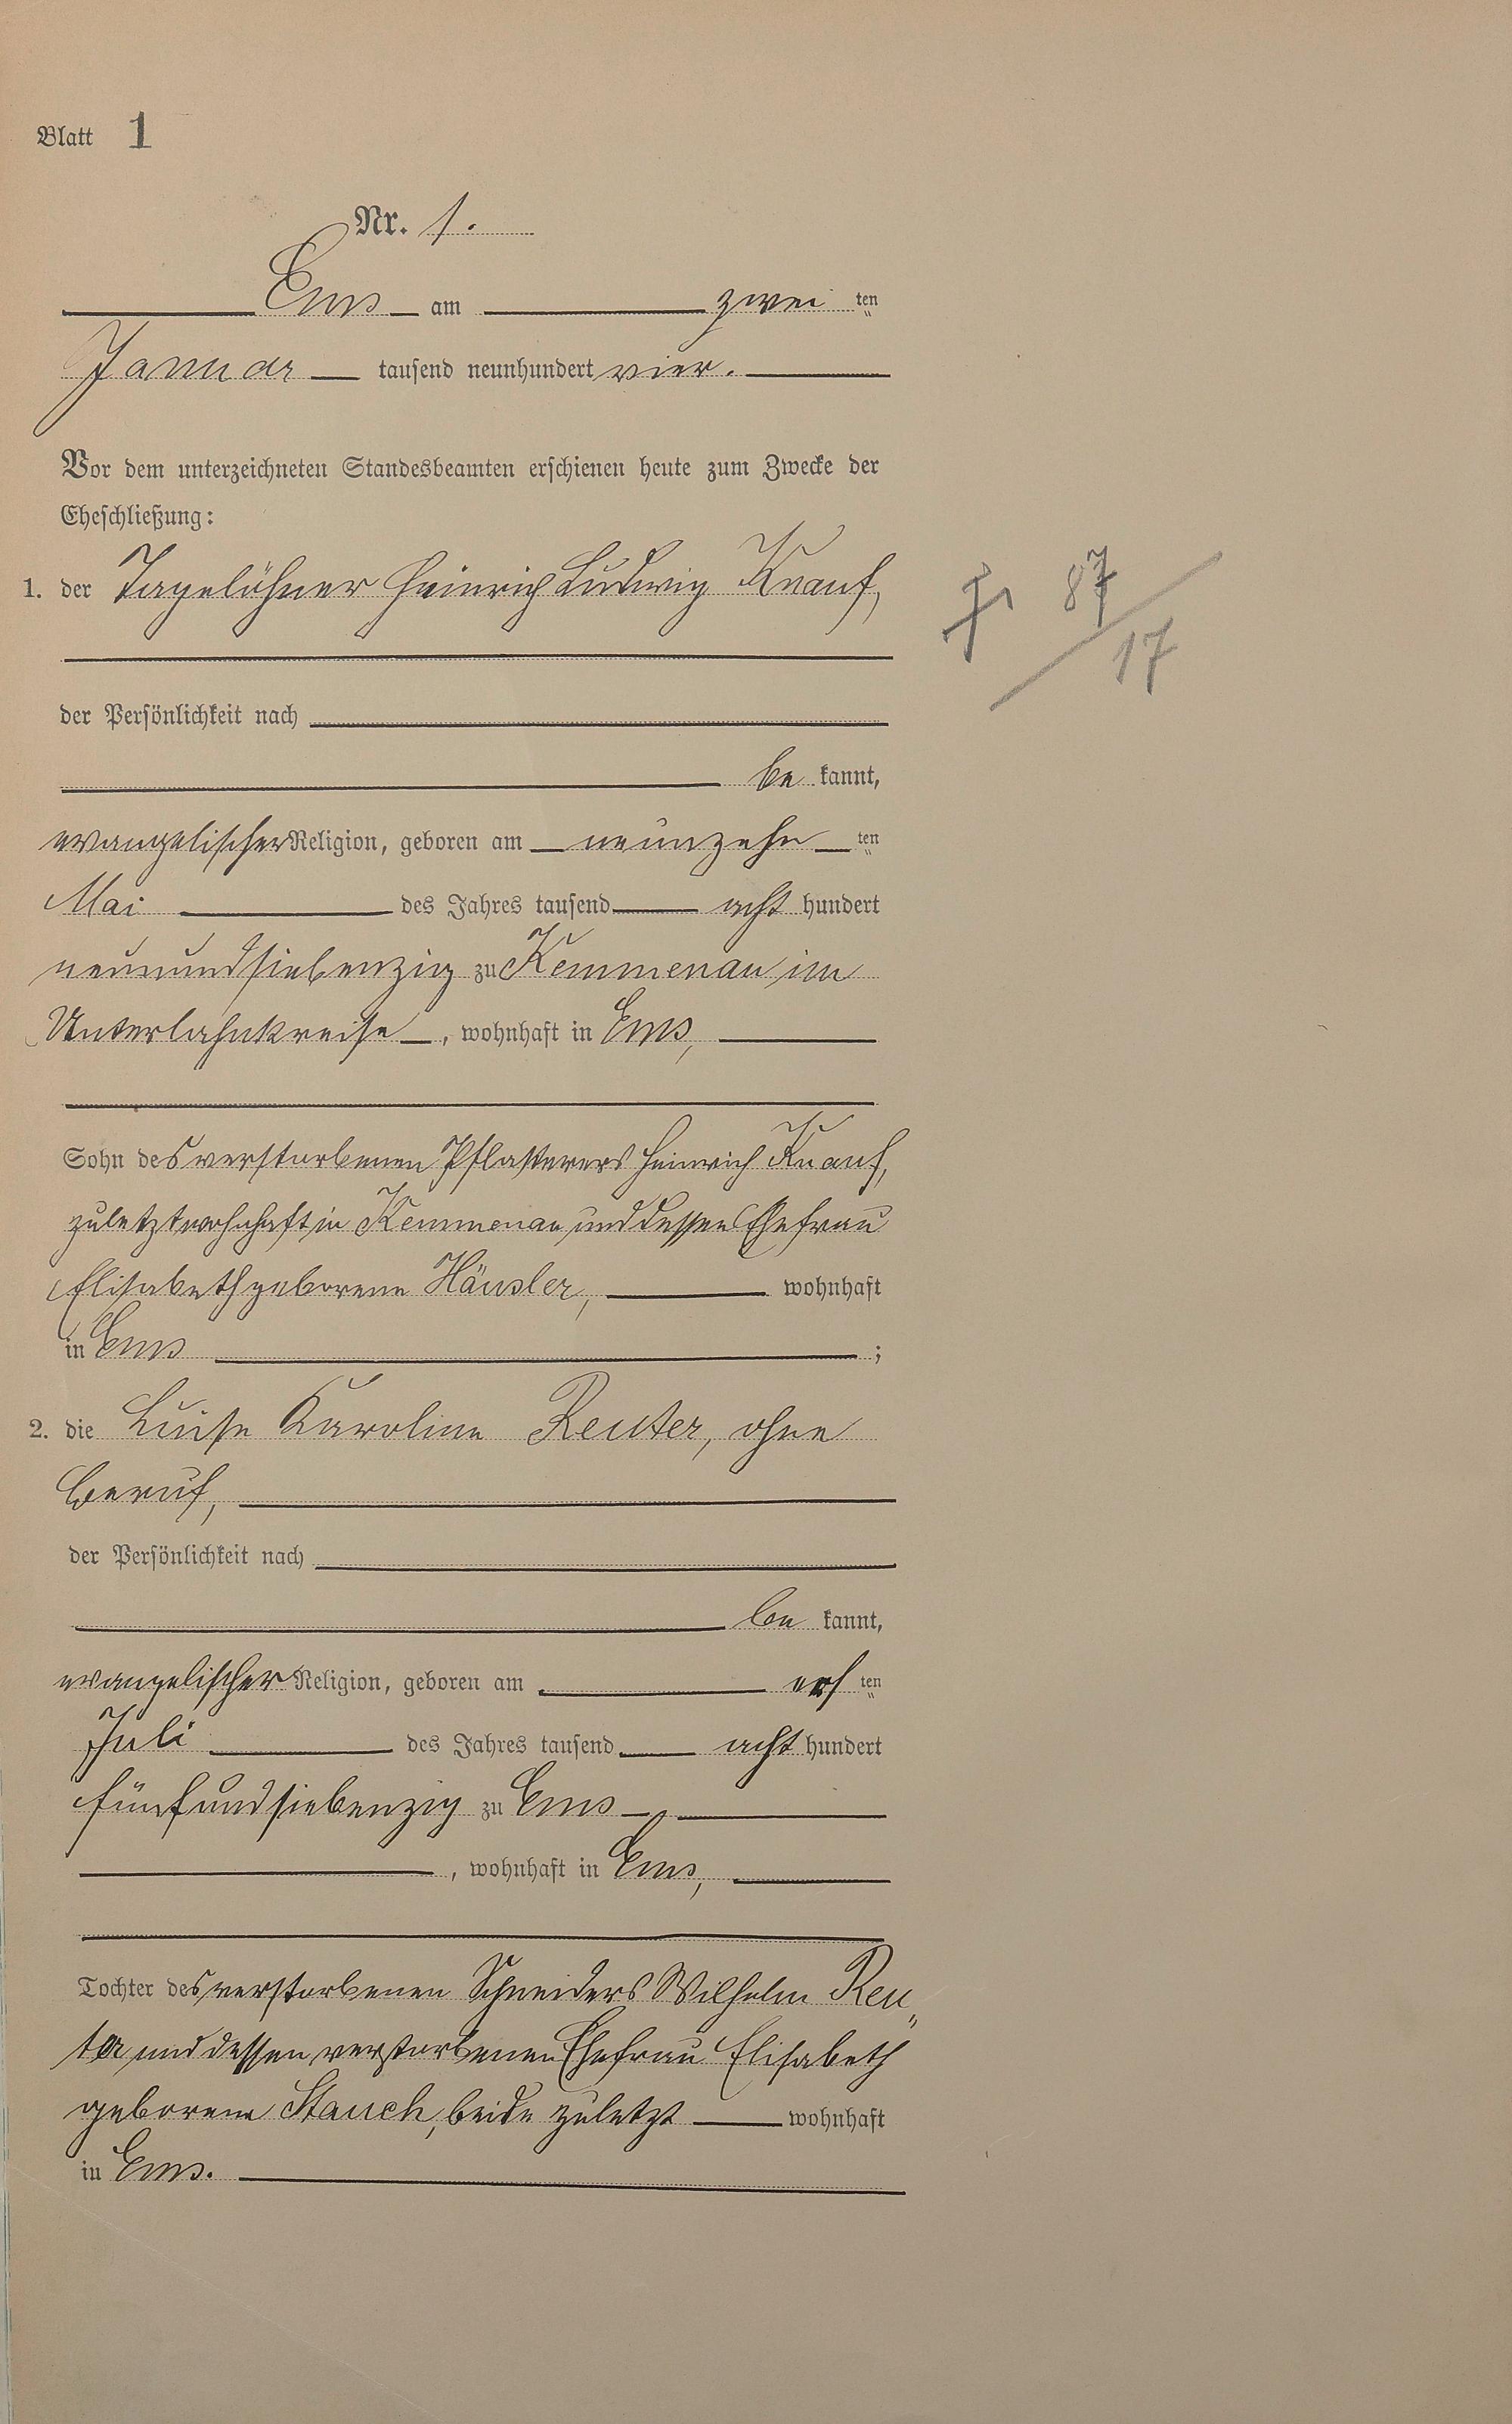 Blatt 1
Nr. 1.
Ems am zwei ten
Januar tausend neunhundert vier.
Vor dem unterzeichneten Standesbeamten erschienen heute zum Zwecke der
Eheschließung:
1. der Tagelöhner Heinrich Ludwig Knauf,
87
17
der Persönlichkeit nach
be kannt,
evangelischer Religion, geboren am neunzehn ten
Mai des Jahres tausend acht hundert
neunundsiebenzig zu Kemmenau im
Unterlahnkreise, wohnhaft in Ems,
Sohn des verstorbenen Pflasterers Heinrich Knauf,
zuletzt wohnhaft in Kemmenau und dessen Ehefrau
Elisabeth geborene Häusler, wohnhaft
in Ems ;
2. die Luise Karoline Reuter, ohne
Beruf,
der Persönlichkeit nach
be kannt,
evangelischer Religion, geboren am ers ten
Juli des Jahres tausend acht hundert
fünfundsiebenzig zu Ems
, wohnhaft in Ems,
Tochter des verstorbenen Schneiders Wilhelm Reu„
ter und dessen verstorbenen Ehefrau Elisabeth
geborene Stauch, beide zuletzt wohnhaft
in Ems.